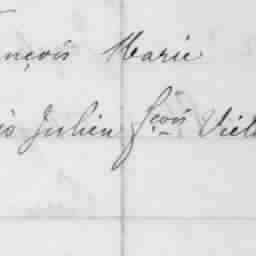 nçois Marie
is Julien fçois Viel